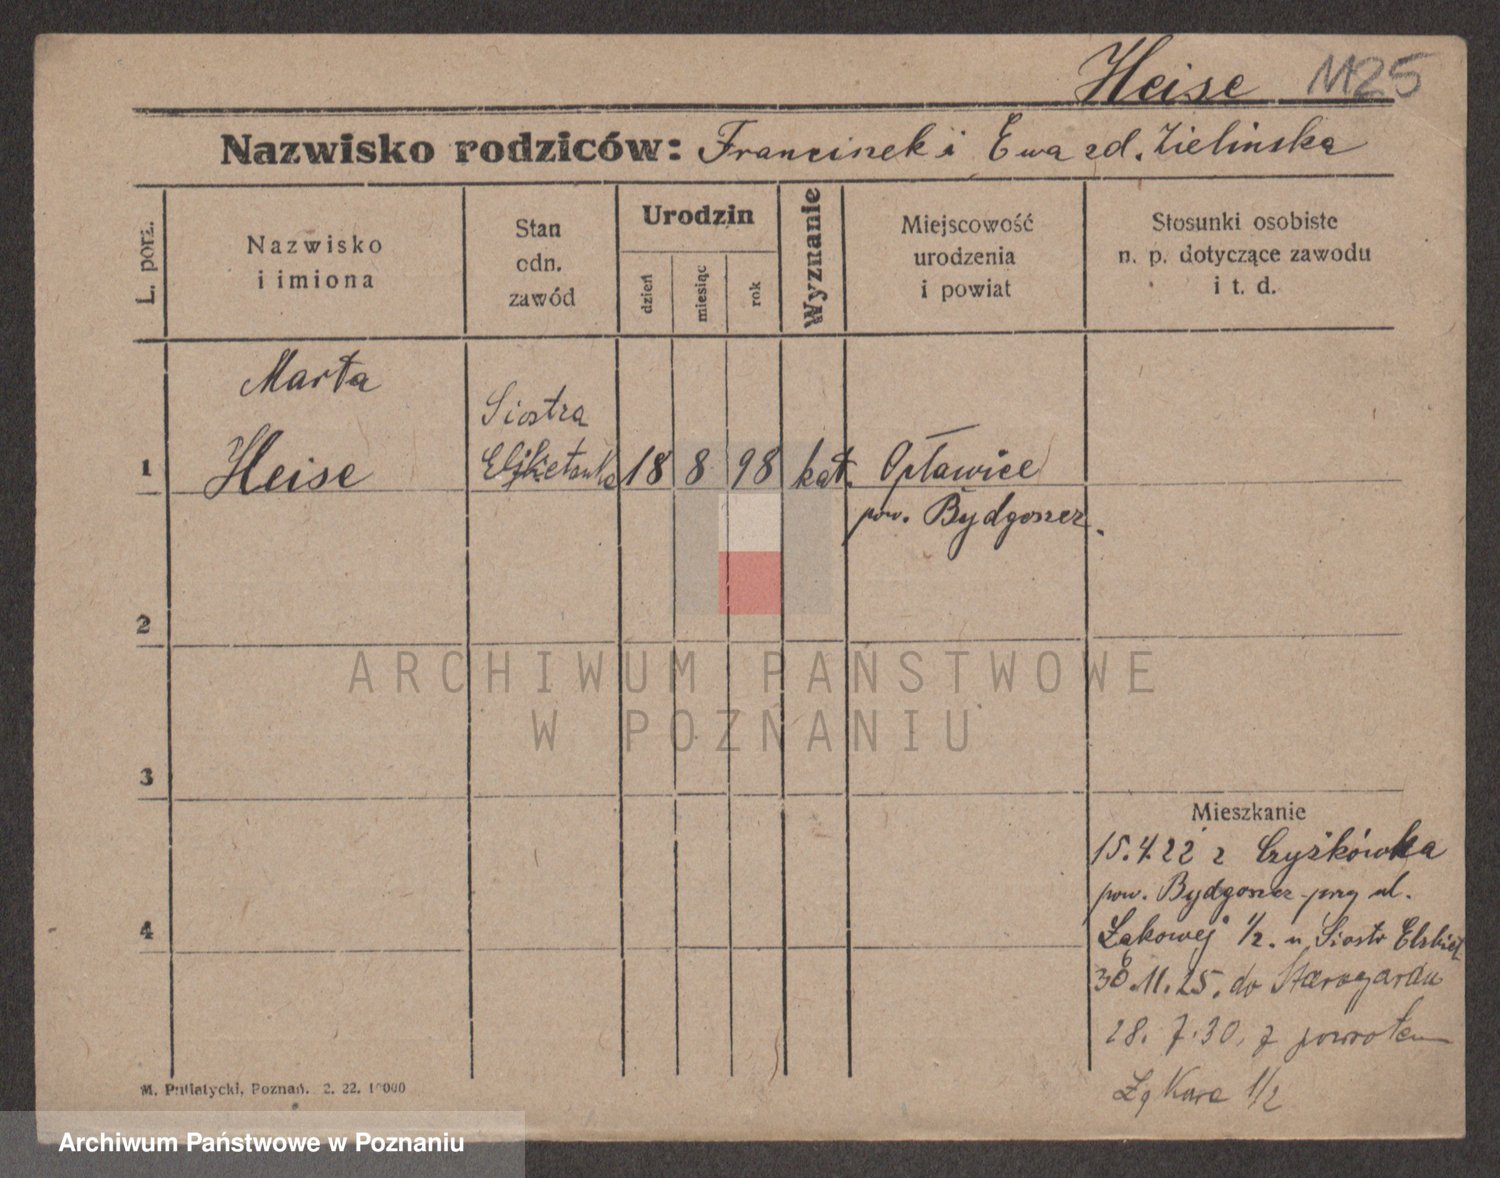 Heise 1125
Nazwisko rodziców: Franciszek i Ewa zd. Zielinska
L. porz.
Nazwisko i imiona
Stan odn. zawód
Urodzin
dzień
miesiąc
rok
Wyznanie
Miejscowość urodzenia i powiat
Stosunki osobiste n. p. dotyczące zawodu i t. d.
Marta
Siostra
1 Heise Elżbietanka 18 8 98 kat. Opławice
pow. Bydgoszcz.
2
ARCHIWUM PAŃSTWOWE
W POZNANIU
3
Mieszkanie
15.4.22 z Czyżkówka
pow. Bydgoszcz przy ul.
4
Łąkowej 1/2. u Siostr Elżbiet
30.11.25. do Starogardu
28. 7.30. z powrotem
Łąkowa 1/2
M. Putiatycki, Poznań. 2. 22. 10000
Archiwum Państwowe w Poznaniu